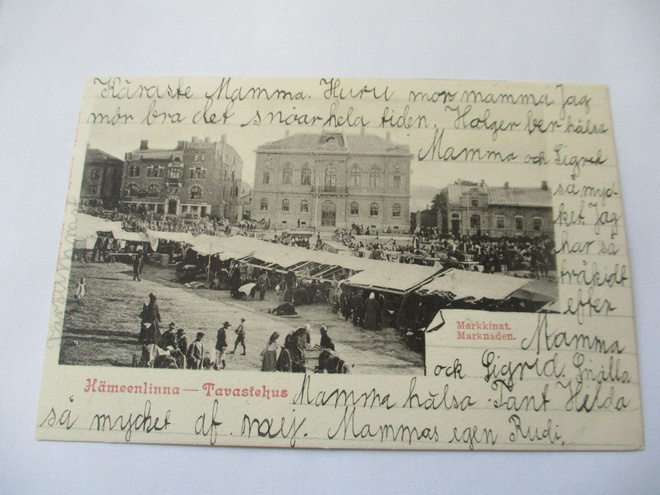 Käraste Mamma. Huru mor mamma Jag
mår bra det snöar hela tiden. Holger ber hälsa
Mamma och Sigrid
så myc-
ket. Jag
har så
tråkigt
efter
Markkinat.
Marknaden.
Mamma
och Sigrid. Snälla
Hämeenlinna — Tavastehus
Mamma hälsa Tant Helda
så mycket af mig. Mammas egen Rudi.